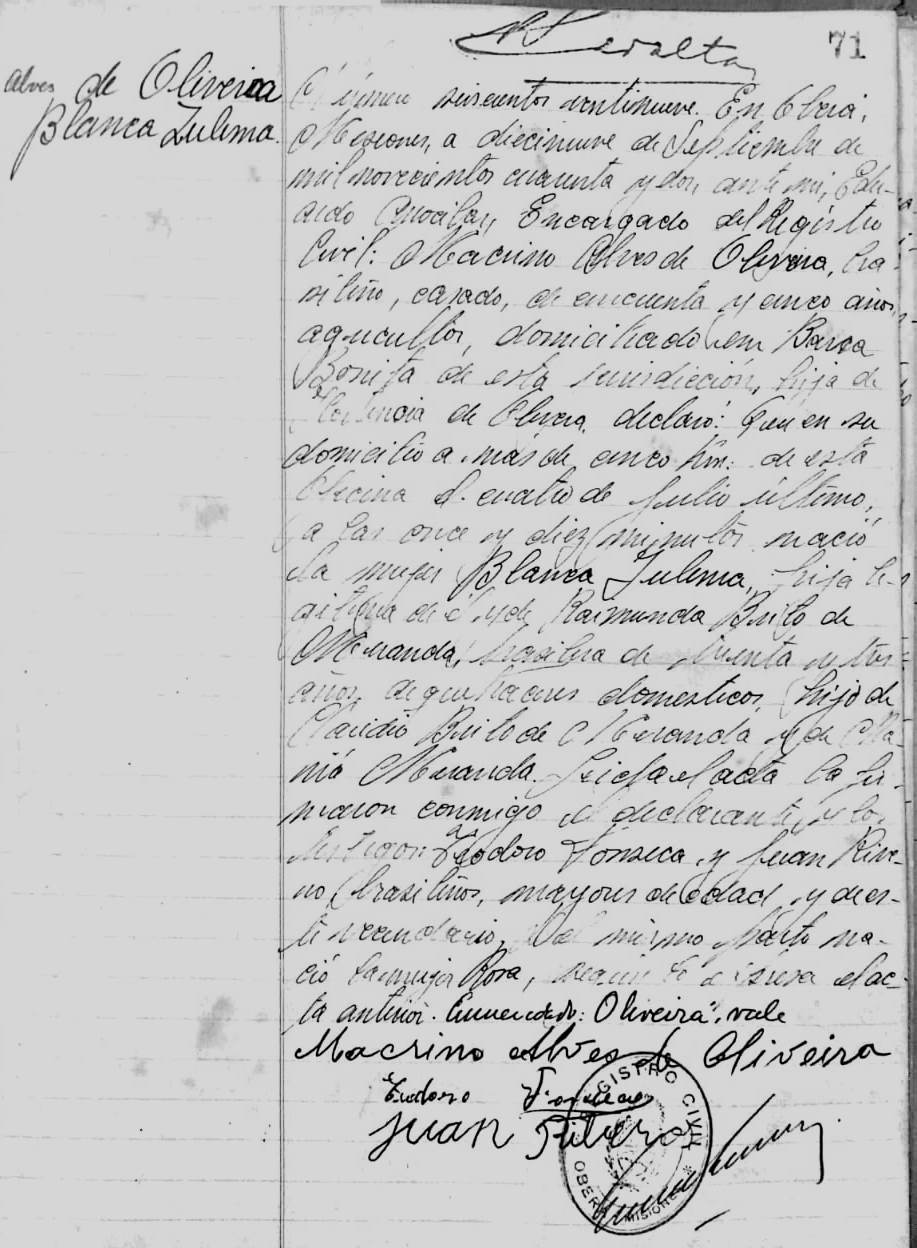 71
Alves de Oliveira
Blanca Zulema.
Número seiscientos veintinueve. En Oberá,
Misiones, a diecinueve de Septiembre de
mil novecientos cuarenta y dos, ante mi, Edu-
ardo Encargado del Registro
Civil: Macrino Alves de Oliveira, bra-
sileño, casado, de cincuenta y cinco años,
agricultor, domiciliado en Barra
Bonita de esta jurisdicción, hijo de
de Olivera, declaró: Que en su
domicilio a más de cinco km. de esta
Oficina el cuatro de Julio último,
a las once y diez minutos nació
la mujer Blanca Zulema, hija le-
gitima de él y de Raimunda Brito de
Miranda, brasilera de treinta y tres
años, de quehaceres domesticos, hija de
Claudio Brito de Miranda y de Ma-
Miranda. Leída el acta la fir-
maron conmigo el declarante y los
testigos: Teodoro Fonseca y Juan Rive-
ro, brasileños, mayores de edad y de es-
te vecindario. Del mismo parto na-
ció la mujer Rosa, según se expresa el ac-
ta anterior. Enmendado: Oliveira", vale
Macrino Alves de Oliveira
Teodoro Fonseca
Juan Ribero
REGISTRO CIVIL
OBERA MISIONES